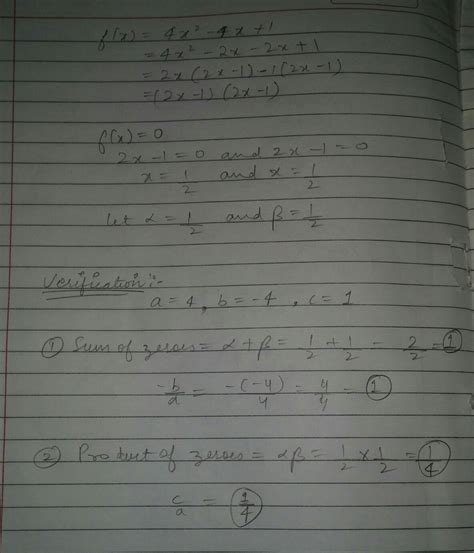 f(x) = 4x² - 4x + 1
= 4x² - 2x - 2x + 1
= 2x (2x - 1) - 1 (2x - 1)
= (2x - 1) (2x - 1)
f(x) = 0
2x - 1 = 0 and 2x - 1 = 0
x = 1/2 and x = 1/2
let α = 1/2 and β = 1/2
Verification:-
a = 4, b = -4, c = 1
① Sum of zeroes = α + β = 1/2 + 1/2 - 2/2 = 1
-b/a = -(-4)/4 = 4/4 = 1
② Product of zeroes = αβ = 1/2 × 1/2 = 1/4
c/a = 1/4